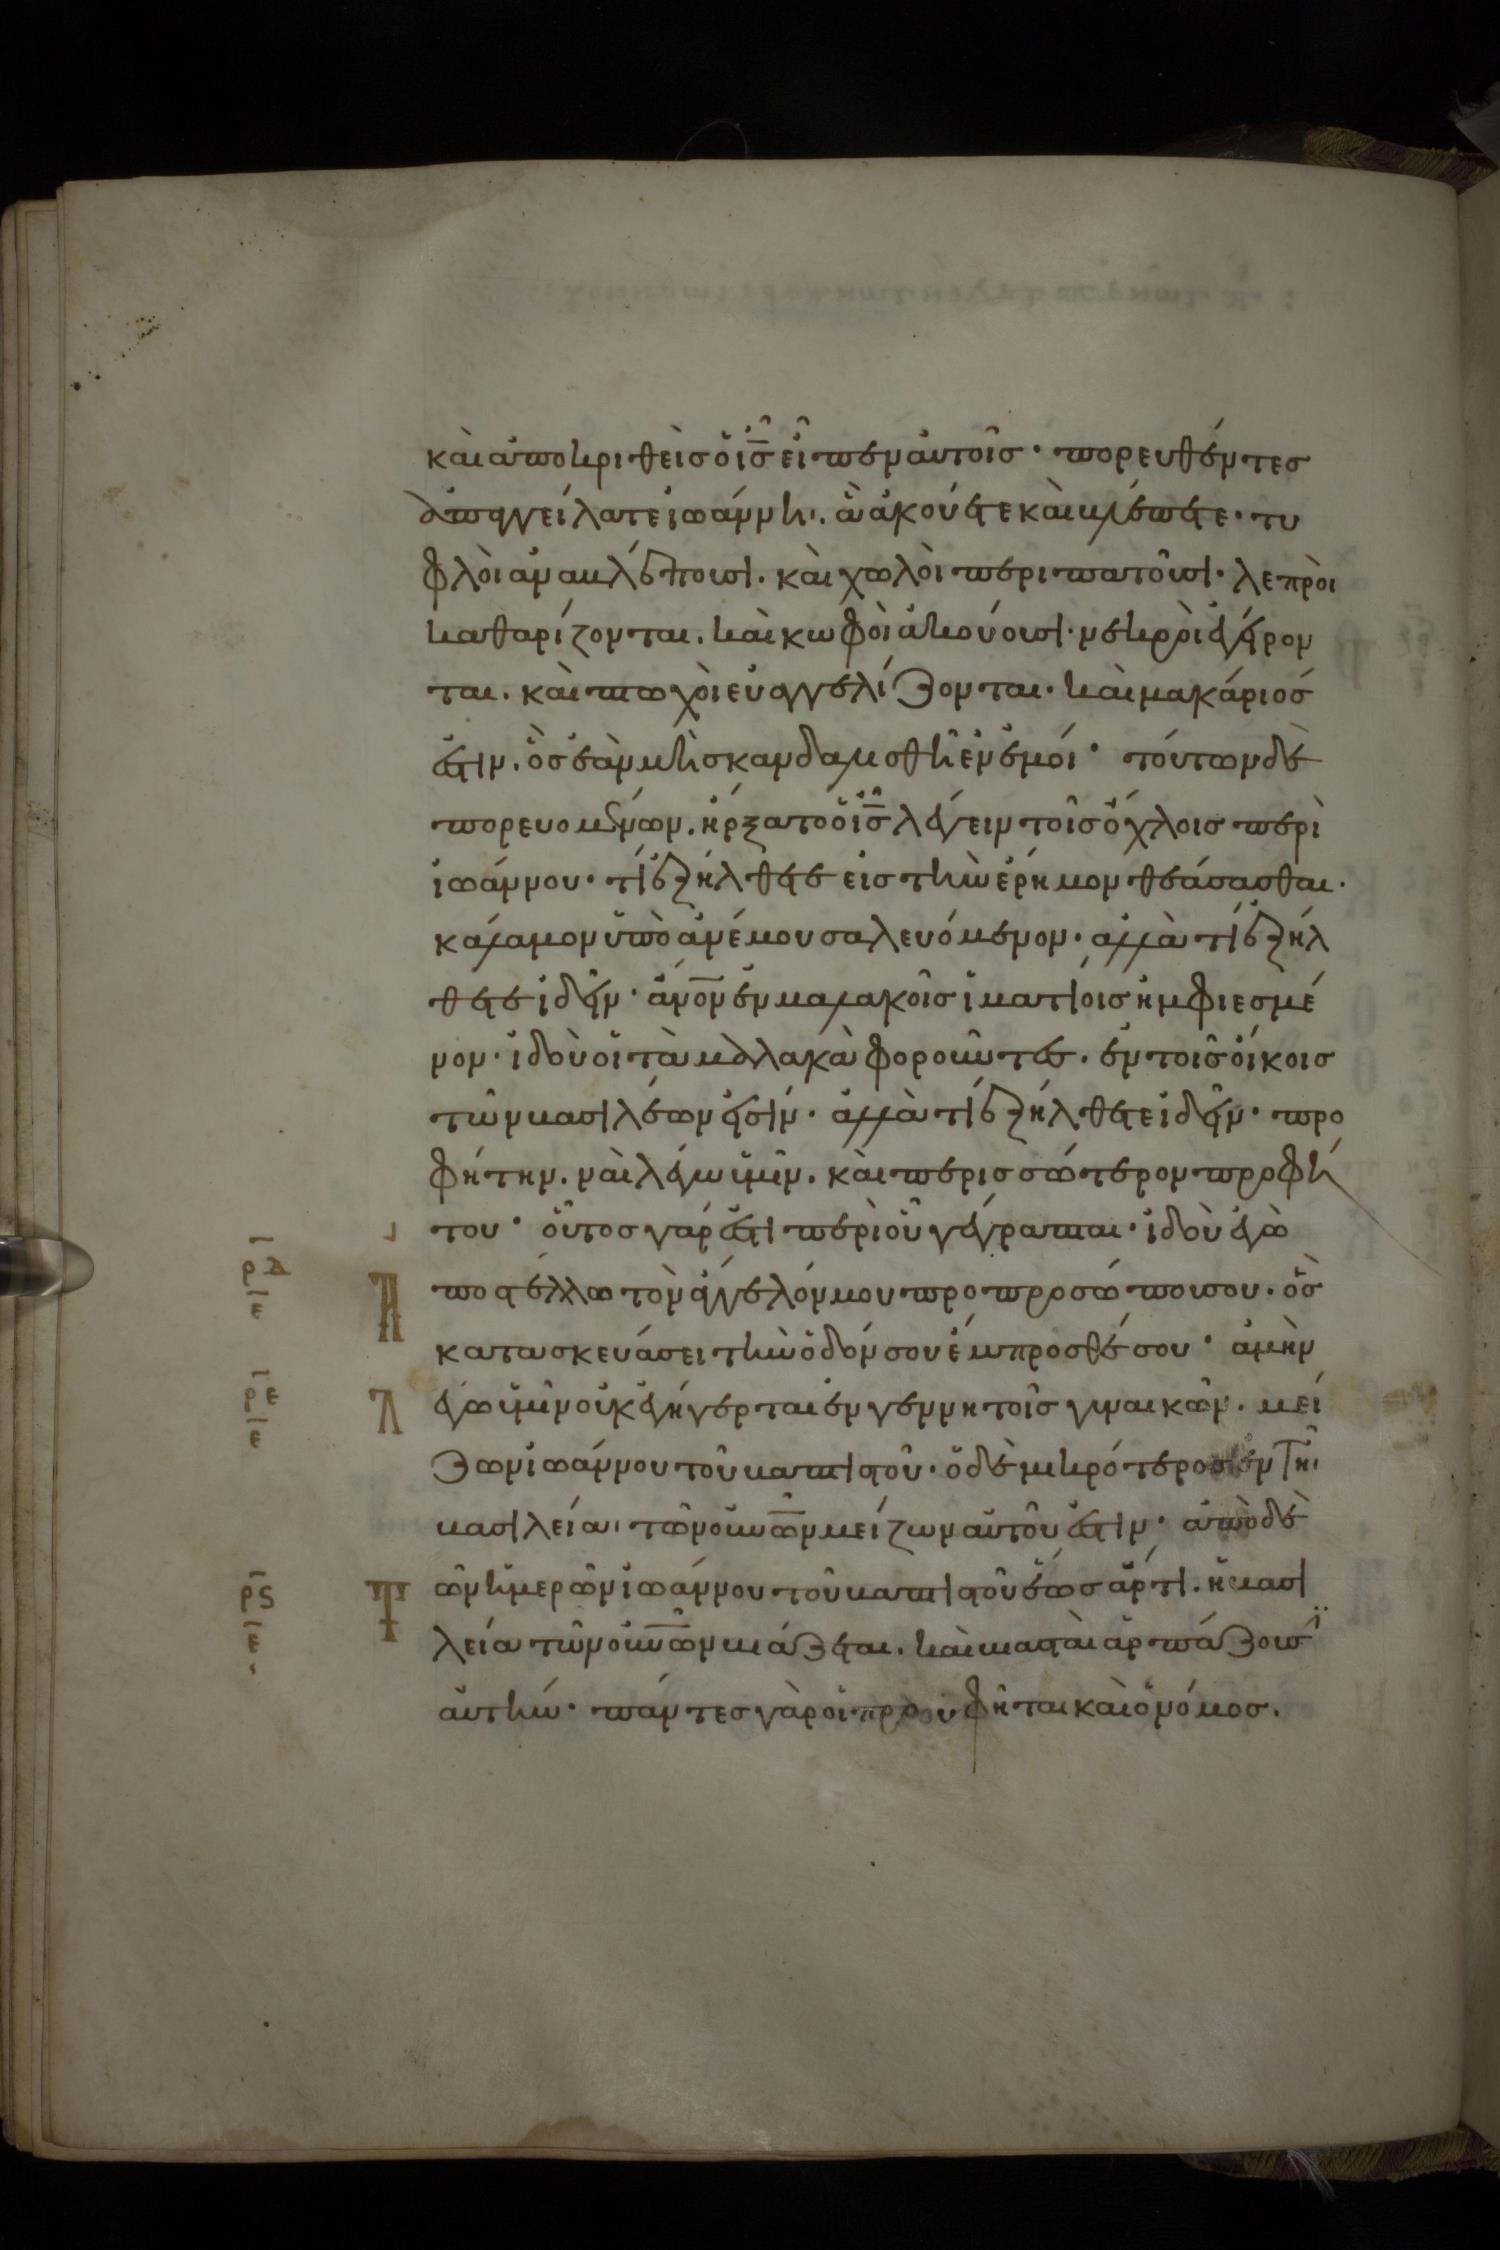 καὶ ἀποκριθεὶς ὁ ἰ̅ς̅ εἶπεν αὐτοῖς· πορευθέντες
ἀπαγγείλατε ἰωάννηι. ἃ ἀκούετε καὶ βλέπετε· τυ
φλοὶ ἀναβλέπουσι. καὶ χωλοὶ περιπατοῦσι· λεπροὶ
καθαρίζονται. καὶ κωφοὶ ἀκούουσι· νεκροὶ ἐγείρον
ται. καὶ πτωχοὶ εὐαγγελίζονται· καὶ μακάριός
ἐστιν. ὃς ἐὰν μὴ σκανδαλισθῆ ἐν ἐμοί· τούτων δὲ
πορευομένων. ἤρξατο ὁ ἰ̅ς̅ λέγειν τοῖς ὄχλοις περὶ
ἰωάννου· τί ἐξήλθετε εἰς τὴν ἔρημον θεάσασθαι.
κάλαμον ὑπὸ ἀνέμου σαλευόμενον· ἀλλὰ τί ἐξήλ
θετε ἰδεῖν· ἄν̅ο̅ν ἐν μαλακοῖς ἱματίοις ἠμφιεσμέ
νον· ἰδοὺ οἱ τὰ μαλακὰ φοροῦντες. ἐν τοῖς οἴκοις
τῶν βασιλέων εἰσίν· ἀλλὰ τί ἐξήλθετε ἰδεῖν· προ
φήτην. ναὶ λέγω ὑμῖν. καὶ περισσότερον προφή
του· οὗτος γάρ ἐστι περὶ οὗ γέγραπται· ἰδοὺ ἐγὼ
ρ̅δ̅ ε̅ Ἀ ποστέλλω τὸν ἄγγελόν μου πρὸ προσώπου σου· ὃς
κατασκευάσει τὴν ὁδόν σου ἔμπροσθέ σου· ἀμὴν
ρ̅ε̅ ε̅ Λ έγω ὑμῖν οὐκ ἐγήγερται ἐν γεννητοῖς γυναικῶν. μεί
ζων ἰωάννου τοῦ βαπτιστοῦ· ὁ δὲ μικρότερος ἐν τῆι
βασιλείαι τῶν οὐ̅ν̅ῶν μείζων αὐτοῦ ἐστιν· ἀπὸ δὲ
ρ̅ϛ̅ ε̅ Τ ῶν ἡμερῶν ἰωάννου τοῦ βαπτιστοῦ ἕως ἄρτι. ἡ βασι
λεία τῶν οὐ̅ν̅ῶν βιάζεται. καὶ βιασταὶ ἁρπάζουσϊ
αὐτήν· πάντες γὰρ οἱ προφῆται καὶ ὁ νόμος.